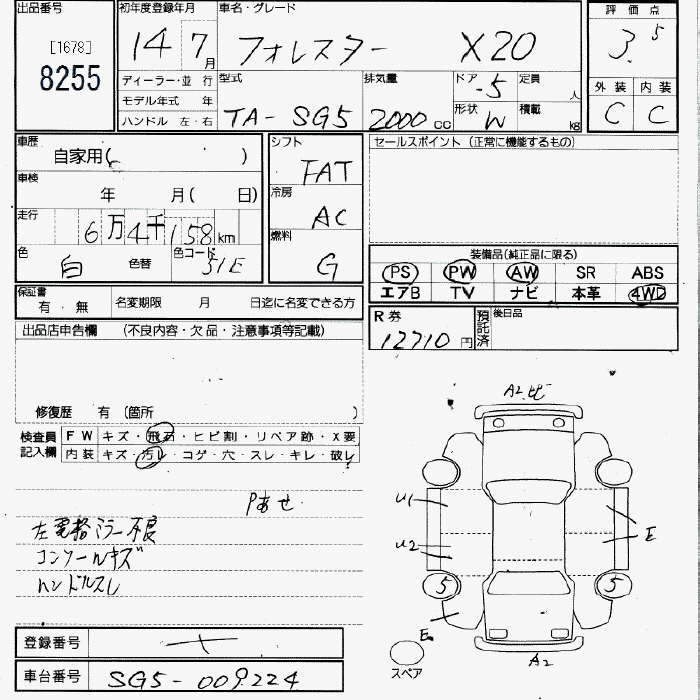 出品番号
[1678]
8255
初年度登録年月
14 7月
車名・グレード
フォレスター X20
評価点
3.5
外装 内装
C C
ディーラー・並行
モデル年式 年
ハンドル 左・右
型式
TA-SG5
排気量
2000CC
ドア
-5
形状
W
定員
人
積載
kg
車歴
自家用( )
車検
年 月( 日)
走行
6万4千158km
色
白
色替
色コード
51E
シフト
FAT
冷房
AC
燃料
G
セールスポイント(正常に機能するもの)
装備品(純正品に限る)
PS PW AW SR ABS
エアB TV ナビ 本革 4WD
保証書
有・無
名変期限 月 日迄に名変できる方
R券
12710円
預託済
後日品
出品店申告欄 (不良内容・欠品・注意事項等記載)
修復歴 有 (箇所 )
検査員記入欄
FW キズ・飛石・ヒビ割・リペア跡・X要
内装 キズ・汚レ・コゲ・穴・スレ・キレ・破レ
Pあせ
左電格ミラー不良
コンソールキズ
ハンドルスレ
A2ヒビ
U1
U2
E
5
5
E
A2
スペア
登録番号
車台番号 SG5-009224